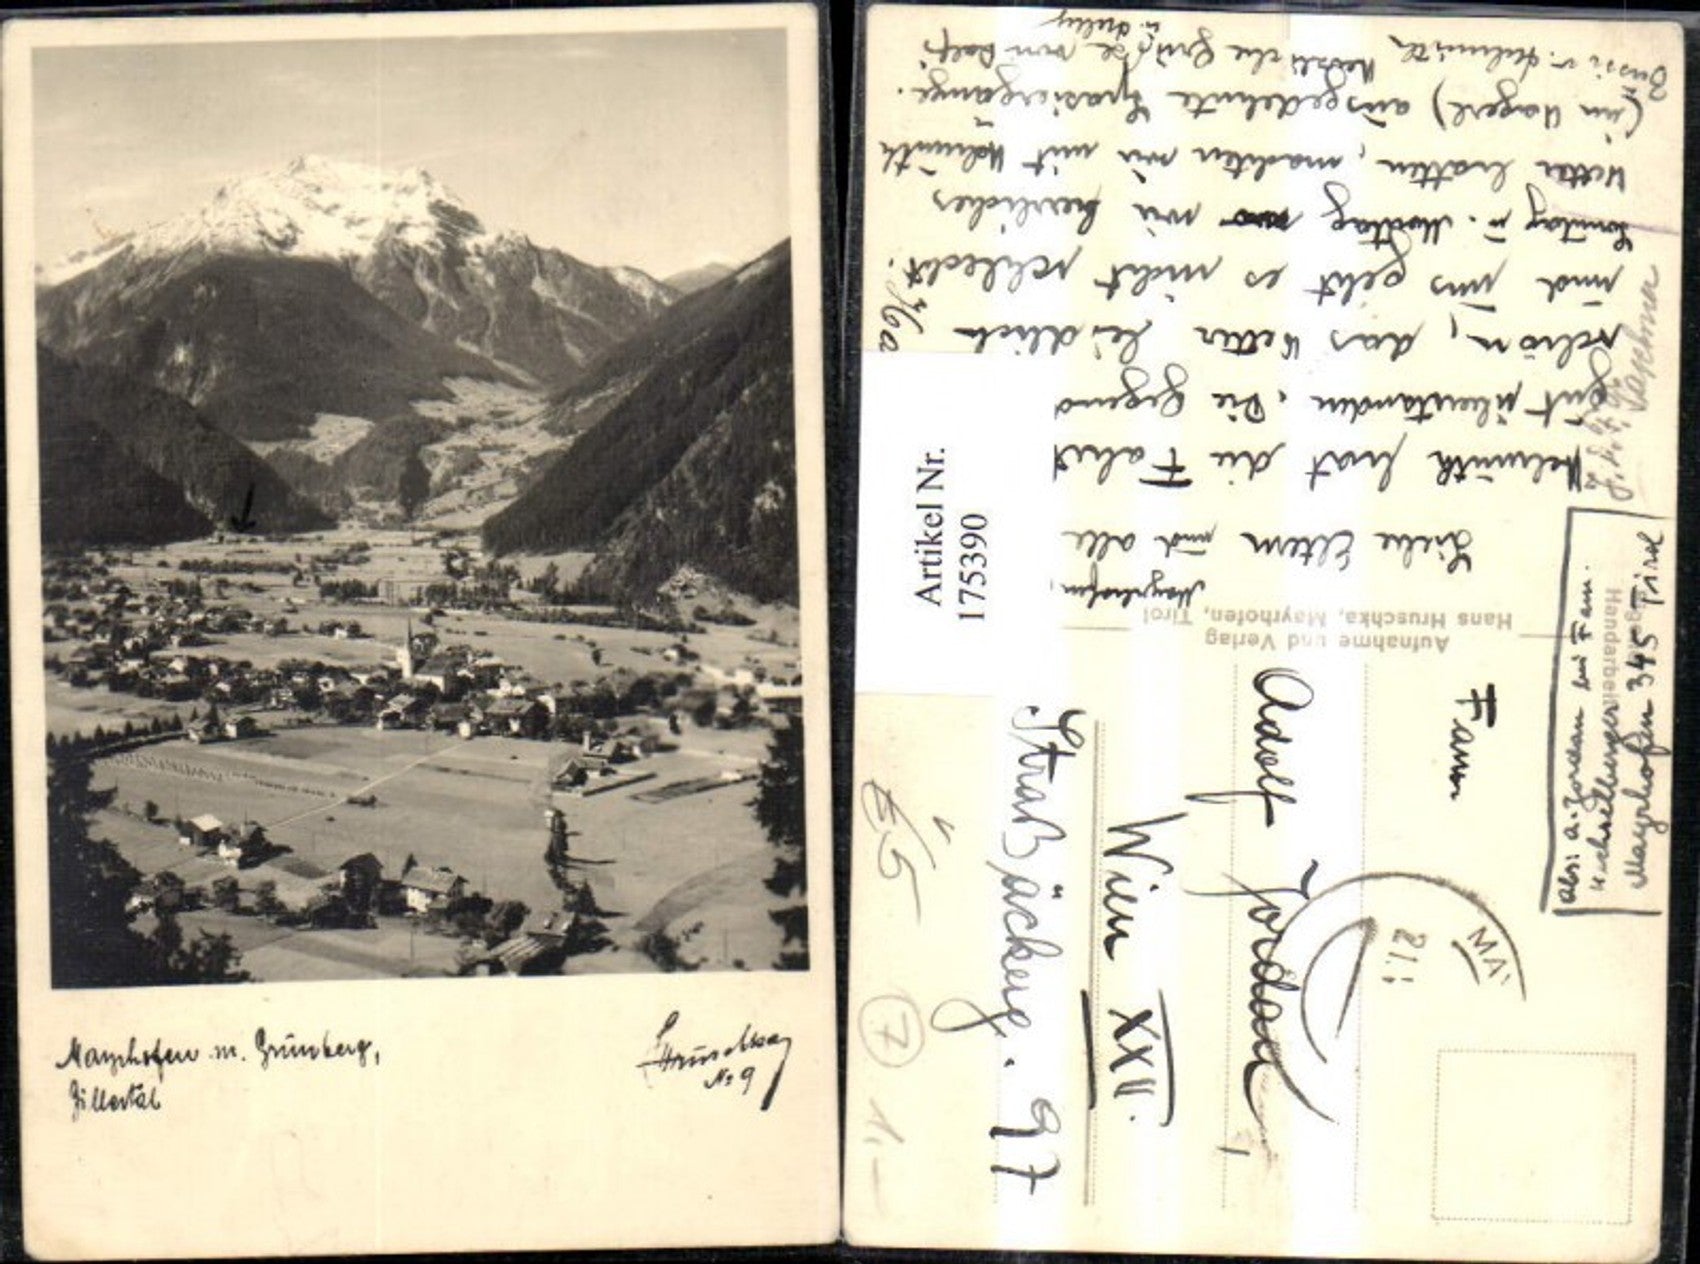 Mayrhofen m. Grünberg,
Zillertal
Hruschka
No 9
Mayrhofen,
Liebe Eltern und alle
Helmuth hat die Fahrt
gut überstanden. Die Gegend
schön, das Wetter leidlich
und uns geht es nicht schlecht.
Sonntag u. Montag wir herrliches
Wetter hatten, machten wir mit Helmuth
(im Wagerl) ausgedehnte Spaziergänge.
Herzliche Grüße von
Aufnahme und Verlag
Hans Hruschka, Mayrhofen, Tirol
Artikel Nr.
175390
Fam
Adolf Jordan
Wien XXII.
Straßäckerg. 97
Abs: A. Jordan bei Fam.
Handarbeiten
Mayrhofen 345 Tirol
MA
21.
7
1,—